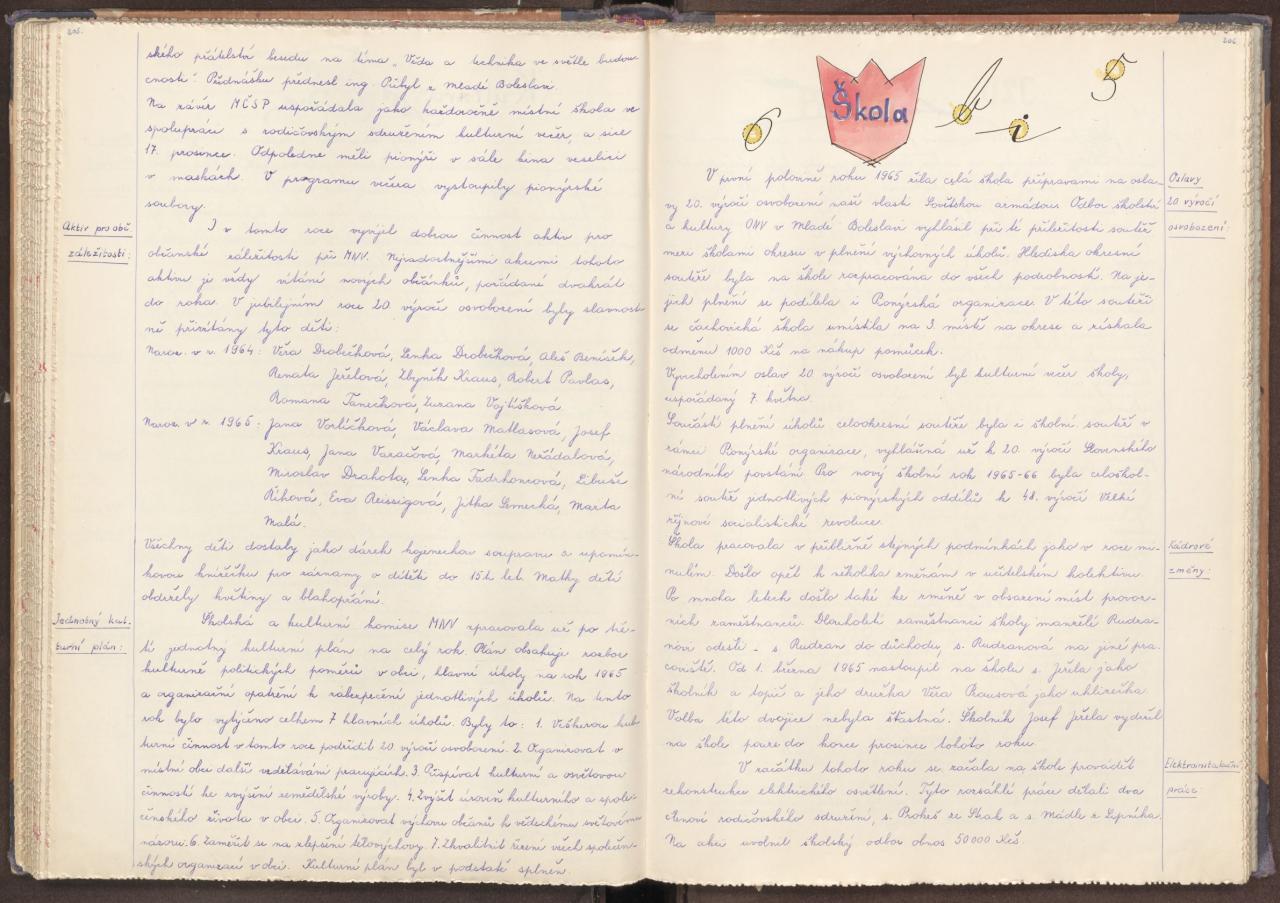 205.
ského přátelství besedu na téma „Věda a technika ve světle budou-
cnosti". Přednášku přednesl ing. Přibyl z Mladé Boleslavi.
Na závěr MČSP uspořádala jako každoročně místní škola ve
spolupráci s rodičovským sdružením kulturní večer, a sice
17. prosince. Odpoledne měli pionýři v sále kina veselici
v maskách. V programu večera vystoupily pionýrské
soubory.
Aktiv pro obč.
záležitosti:
I v tomto roce vyvíjel dobrou činnost aktiv pro
občanské záležitosti při MNV. Nejradostnějšími akcemi tohoto
aktivu je vždy vítání nových občánků, pořádané dvakrát
do roka. V jubilejním roce 20. výročí osvobození byly slavnost-
ně přivítány tyto děti:
Naroz. v r. 1964: Věra Drobečková, Lenka Drobečková, Aleš Beníšek,
Renata Jeřelová, Zbyněk Kraus, Robert Pavlas,
Romana Tanečková, Zuzana Vojtíšková
Naroz. v r. 1965: Jana Vorlíčková, Václava Matlasová, Josef
Kraus, Jana Vavačová, Markéta Neřádalová,
Miroslav Drahota, Lenka Fadrhoncová, Libuše
Říhová, Eva Reissigová, Jitka Semecká, Marta
Malá.
Všechny děti dostaly jako dárek kojeneckou soupravu a upomín-
kovou knížečku pro záznamy o dítěti do 15ti let. Matky dětí
obdržely květiny a blahopřání.
Jednotný kul-
turní plán:
Školská a kulturní komise MNV zpracovala už po tře-
tí jednotný kulturní plán na celý rok. Plán obsahuje rozbor
kulturně politických poměrů v obci, hlavní úkoly na rok 1965
a organizační opatření k zabezpečení jednotlivých úkolů. Na tento
rok bylo vytýčeno celkem 7 hlavních úkolů. Byly to: 1. Veškerou kul-
turní činnost v tomto roce podřídit 20. výročí osvobození. 2. Organizovat v
místní obci další vzdělávání pracujících. 3. Přispívat kulturní a osvětovou
činností ke zvýšení zemědělské výroby. 4. Zvýšit úroveň kulturního a spole-
čenského života v obci. 5. Organizovat výchovu občanů k vědeckému světovému
názoru. 6. Zaměřit se na zlepšení tělovýchovy. 7. Zkvalitnit řízení všech společen-
ských organizací v obci. Kulturní plán byl v podstatě splněn.
206
6 Škola b i 5
V první polovině roku 1965 žila celá škola přípravami na osla-
vy 20. výročí osvobození naší vlasti Sovětskou armádou. Odbor školství
a kultury ONV v Mladé Boleslavi vyhlásil při té příležitosti soutěž
mezi školami okresu v plnění výchovných úkolů. Hlediska okresní
soutěže byla na škole rozpracována do všech podrobností. Na je-
jich plnění se podílela i Pionýrská organizace. V této soutěži
se čachovická škola umístila na 3. místě na okrese a získala
odměnu 1000 Kčs na nákup pomůcek.
Vyvrcholením oslav 20. výročí osvobození byl kulturní večer školy,
uspořádaný 7. května.
Součástí plnění úkolů celookresní soutěže byla i školní soutěž v
rámci Pionýrské organizace, vyhlášená už k 20. výročí Slovenského
národního povstání. Pro nový školní rok 1965-66 byla celoškol-
ní soutěž jednotlivých pionýrských oddílů k 48. výročí Velké
říjnové socialistické revoluce.
Oslavy
20. výročí
osvobození:
Škola pracovala v přibližně stejných podmínkách jako v roce mi-
nulém. Došlo opět k několika změnám v učitelském kolektivu.
Po mnoha letech došlo také ke změně v obsazení míst provoz-
ních zaměstnanců. Dlouholetí zaměstnanci školy manželé Rudra-
novi odešli - s. Rudran do důchodu, s. Rudranová na jiné pra-
coviště. Od 1. března 1965 nastoupil na školu s. Jeřela jako
školník a topič a jeho družka Věra Krausová jako uklízečka.
Volba této dvojice nebyla šťastná. Školník Josef Jeřela vydržel
na škole pouze do konce prosince tohoto roku.
Kádrové
změny:
V začátku tohoto roku se začala na škole provádět
rekonstrukce elektrického osvětlení. Tyto rozsáhlé práce dělali dva
členové rodičovského sdružení, s. Prokeš ze Strak a s. Mádle z Lipníka.
Na akci uvolnil školský odbor obnos 50 000 Kčs.
Elektroinstalační
práce: